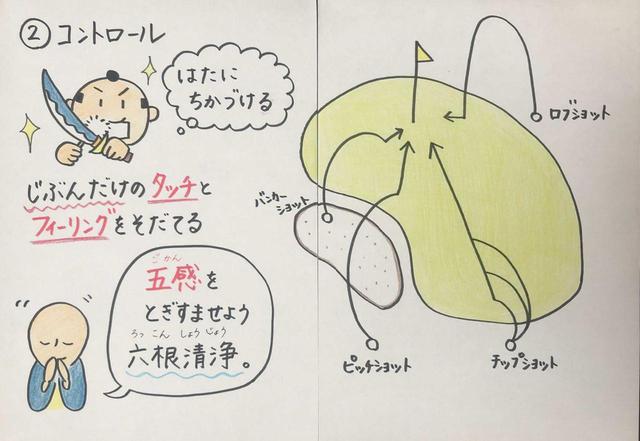 ② コントロール
はたに
ちかづける
じぶんだけのタッチと
フィーリングをそだてる
ごかん
五感を
とぎすませよう
ろっこんしょうじょう
六根清浄。
ロブショット
バンカー
ショット
ピッチショット
チップショット